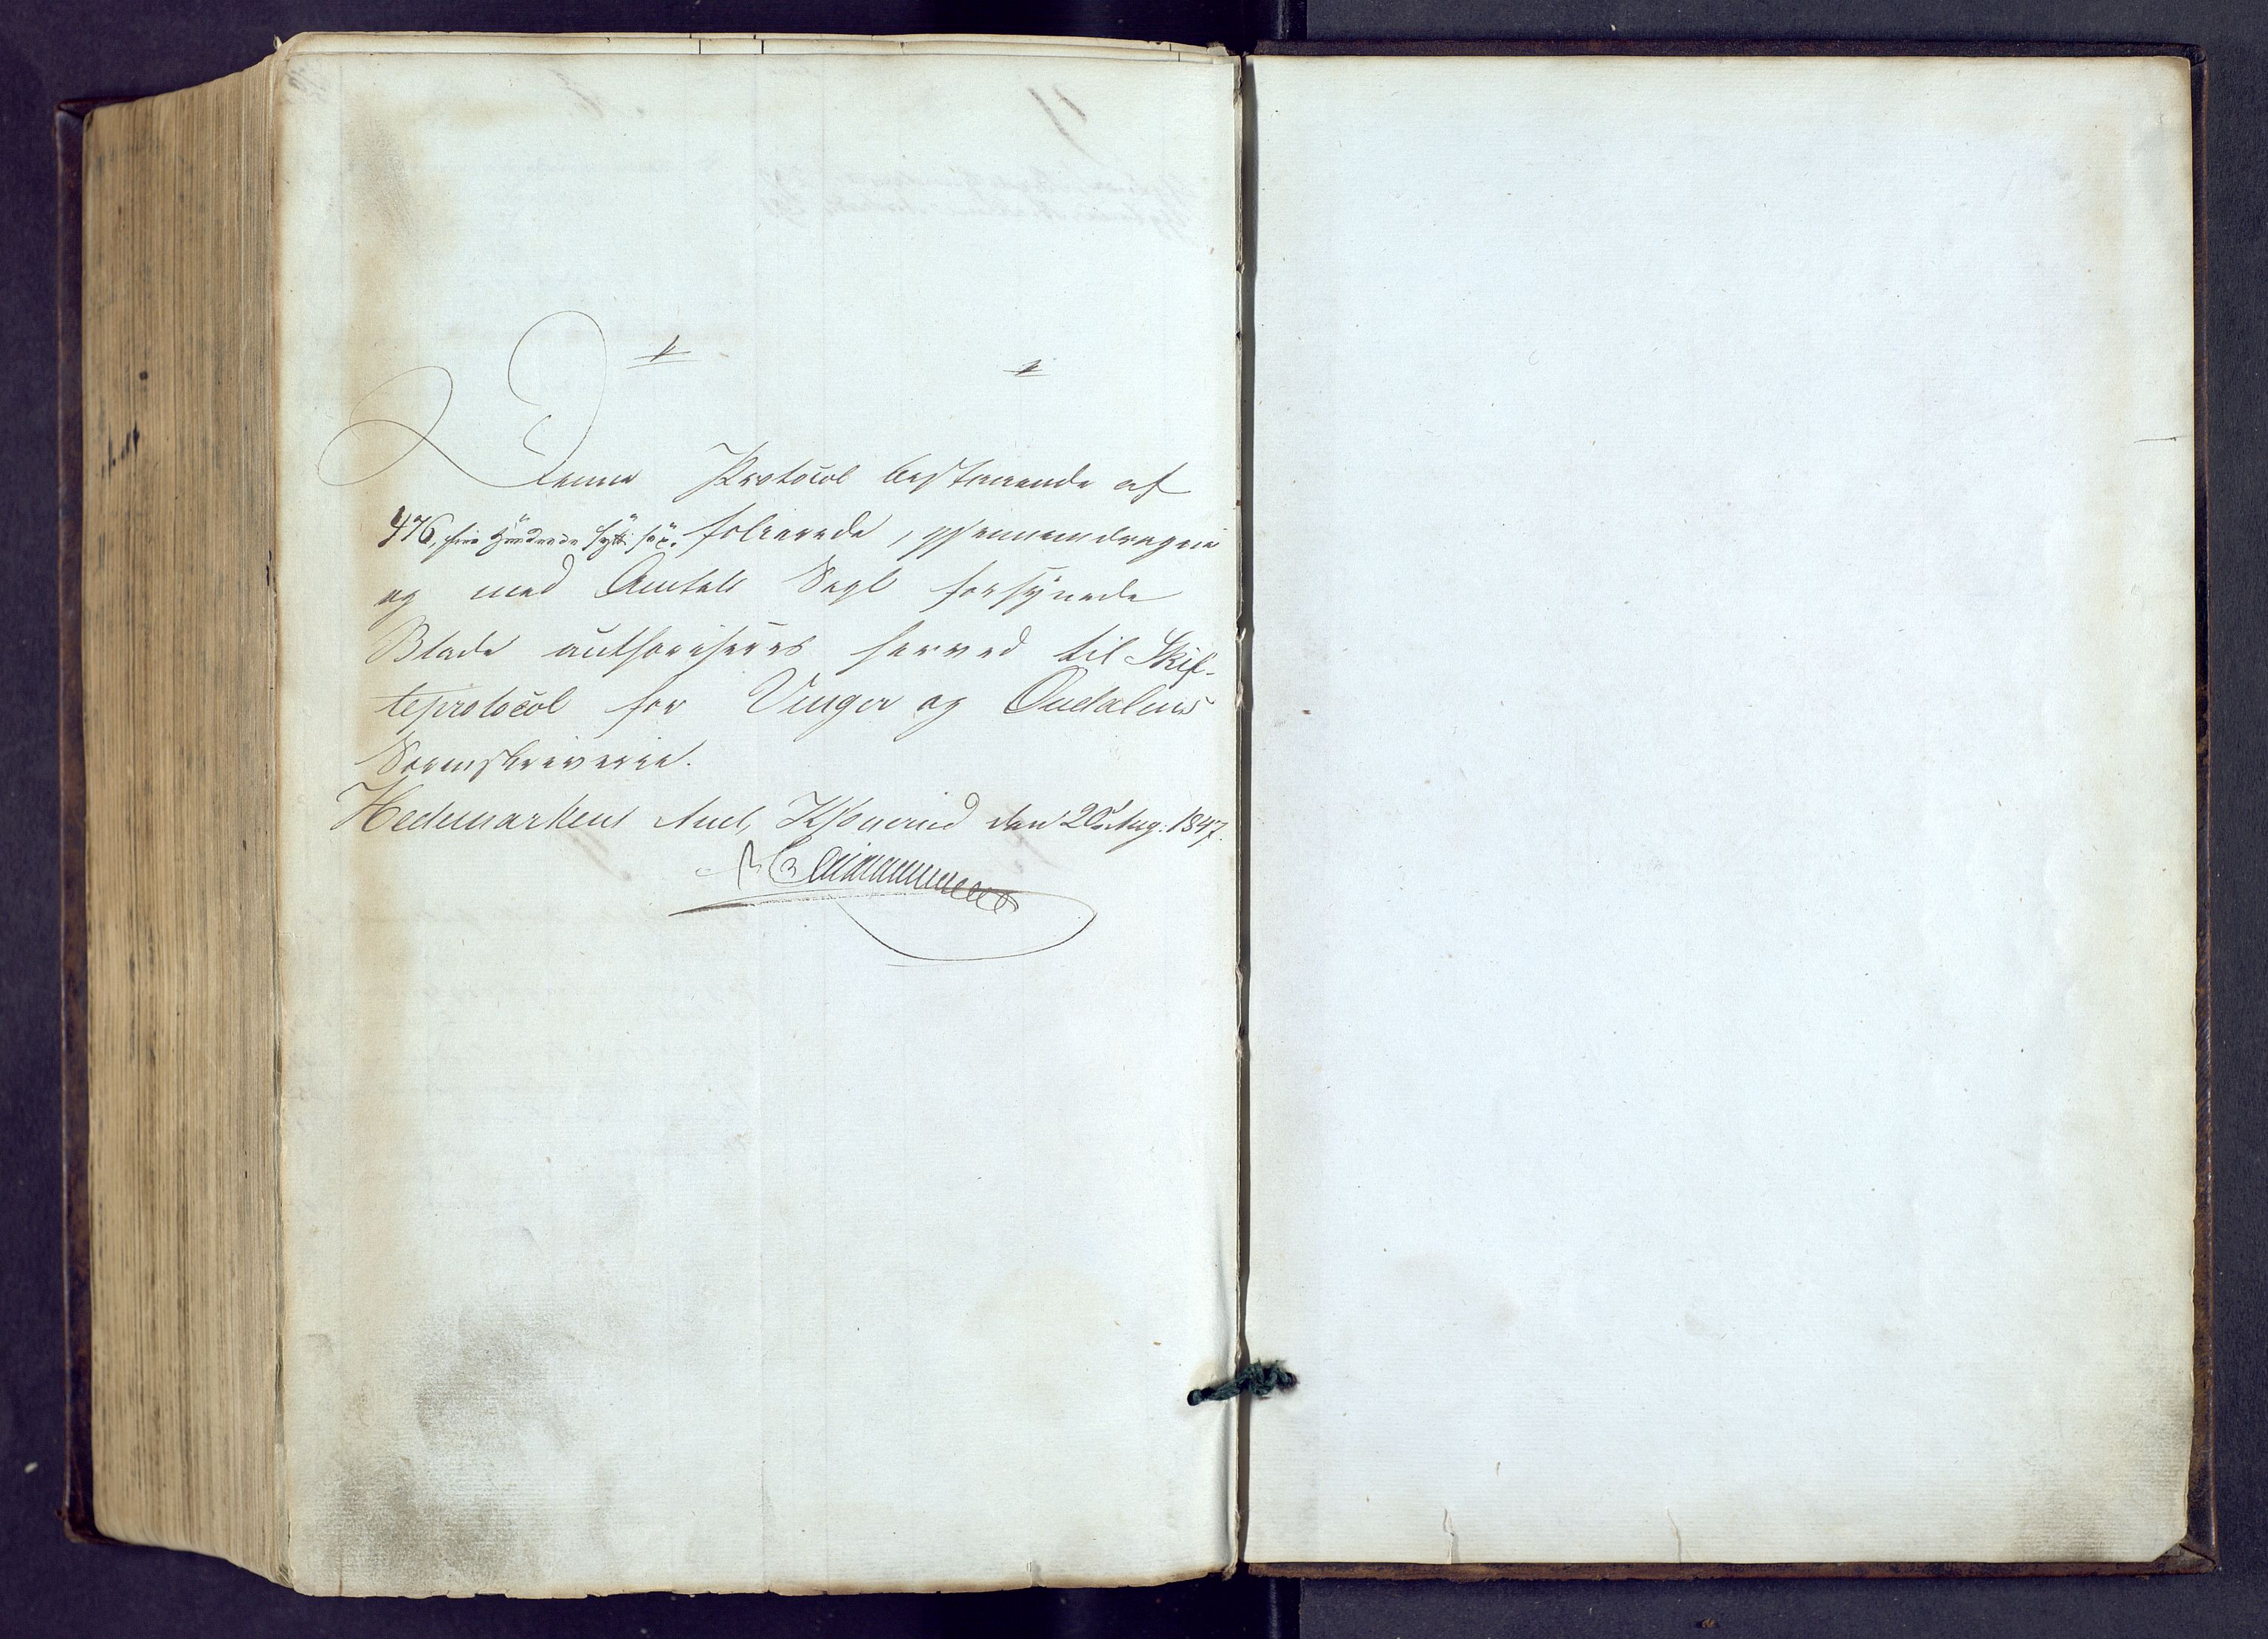 Denne Protocol bestaaende af
476, fire Hundrede sytti sex. folierede, gjennemdragne
og med Amtets Segl forsynede
Blade authoriseres herved til Skif-
teprotocol for Vinger og Oudalens
Sorenskriverie.
Hedemarkens Amt, den 20de Aug: 1847.